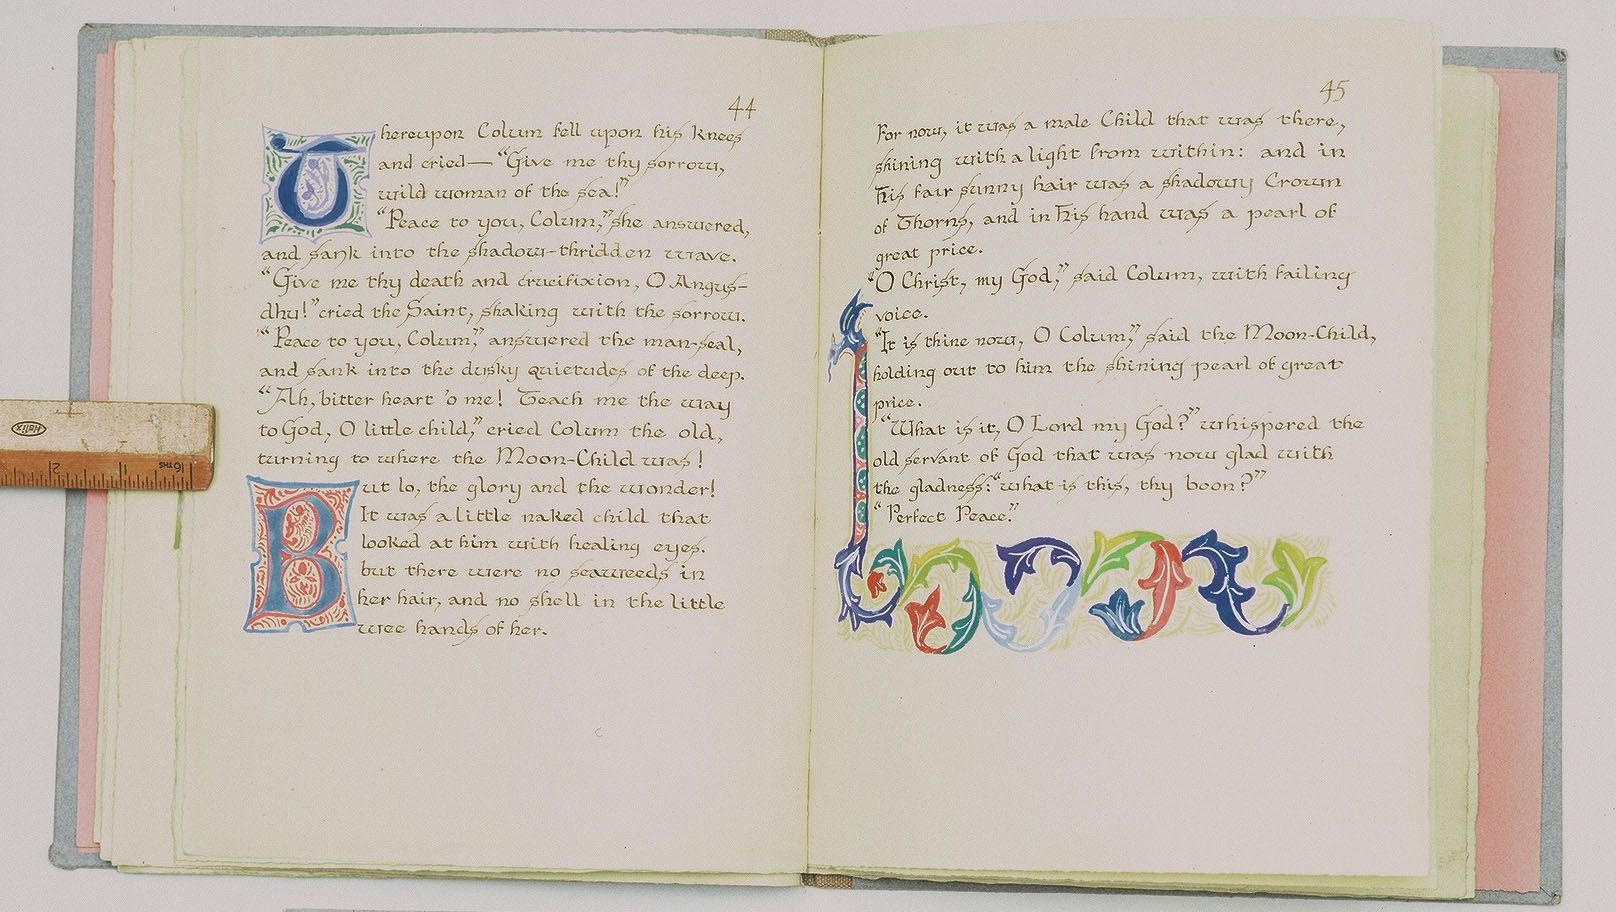 44
Thereupon Colum fell upon his knees
and cried—“Give me thy sorrow,
wild woman of the sea!”
“Peace to you, Colum,” she answered,
and sank into the shadow-thridden wave.
“Give me thy death and crucifixion, O Angus-
dhu!” cried the Saint, shaking with the sorrow.
“Peace to you, Colum,” answered the man-seal,
and sank into the dusky quietudes of the deep.
“Ah, bitter heart o' me! Teach me the way
to God, O little child,” cried Colum the old,
turning to where the Moon-Child was!
But lo, the glory and the wonder!
It was a little naked child that
looked at him with healing eyes.
but there were no seaweeds in
her hair, and no shell in the little
wee hands of her.
45
For now, it was a male Child that was there,
shining with a light from within: and in
His fair sunny hair was a shadowy Crown
of Thorns, and in His hand was a pearl of
great price.
“O Christ, my God,” said Colum, with failing
voice.
“It is thine now, O Colum,” said the Moon-Child,
holding out to him the shining pearl of great
price.
“What is it, O Lord my God?” whispered the
old servant of God that was now glad with
the gladness: “what is this, thy boon?”
“Perfect Peace.”
Helix
2
1
16ths